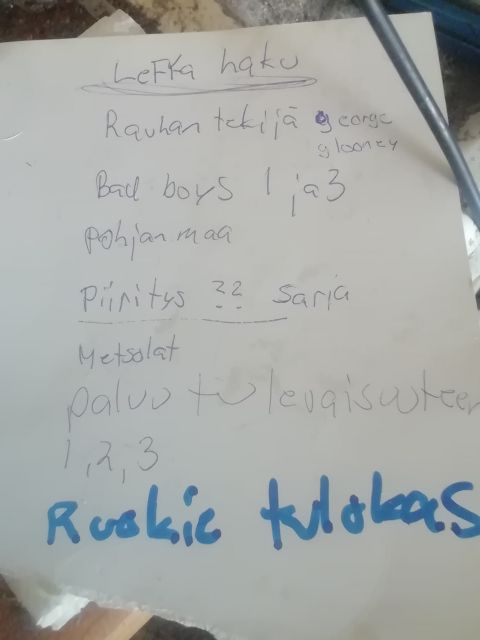 Leffa haku
Rauhan tekijä george
glooney
Bad boys 1 ja 3
pohjanmaa
Piiritys ?? Sarja
Metsolat
paluu tulevaisuuteen
1, 2, 3
Ruokie tulokas